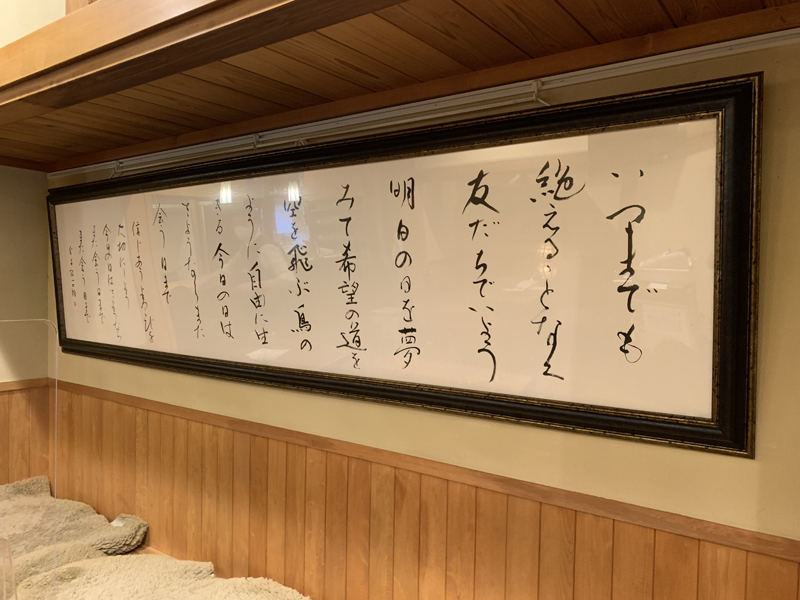 いつまでも
絶えることなく
友だちでいよう
明日の日を夢
みて希望の道を
空を飛ぶ鳥の
ように自由に生
きる今日の日は
さようならまた
会う日まで
信じあうよろこびを
大切にしよう
今日の日はさようなら
また会う日まで
また会う日まで